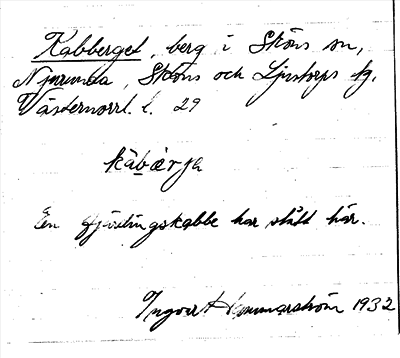 Kabberget, berg i Sköns sn,
Njurunda, Sköns och Ljustorps tg,
Västernorrl. l. 29
kàbær̀ja
En fjärdingskabbe har stått här.
Ingvar Hammarström 1932